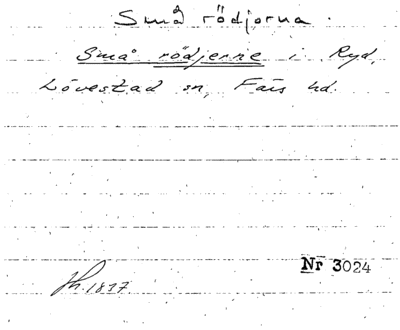 Små rödjorna.
Små rödjerne i Ryd,
Lövestad sn, Färs hd.
Nr 3024
Jh. 1837